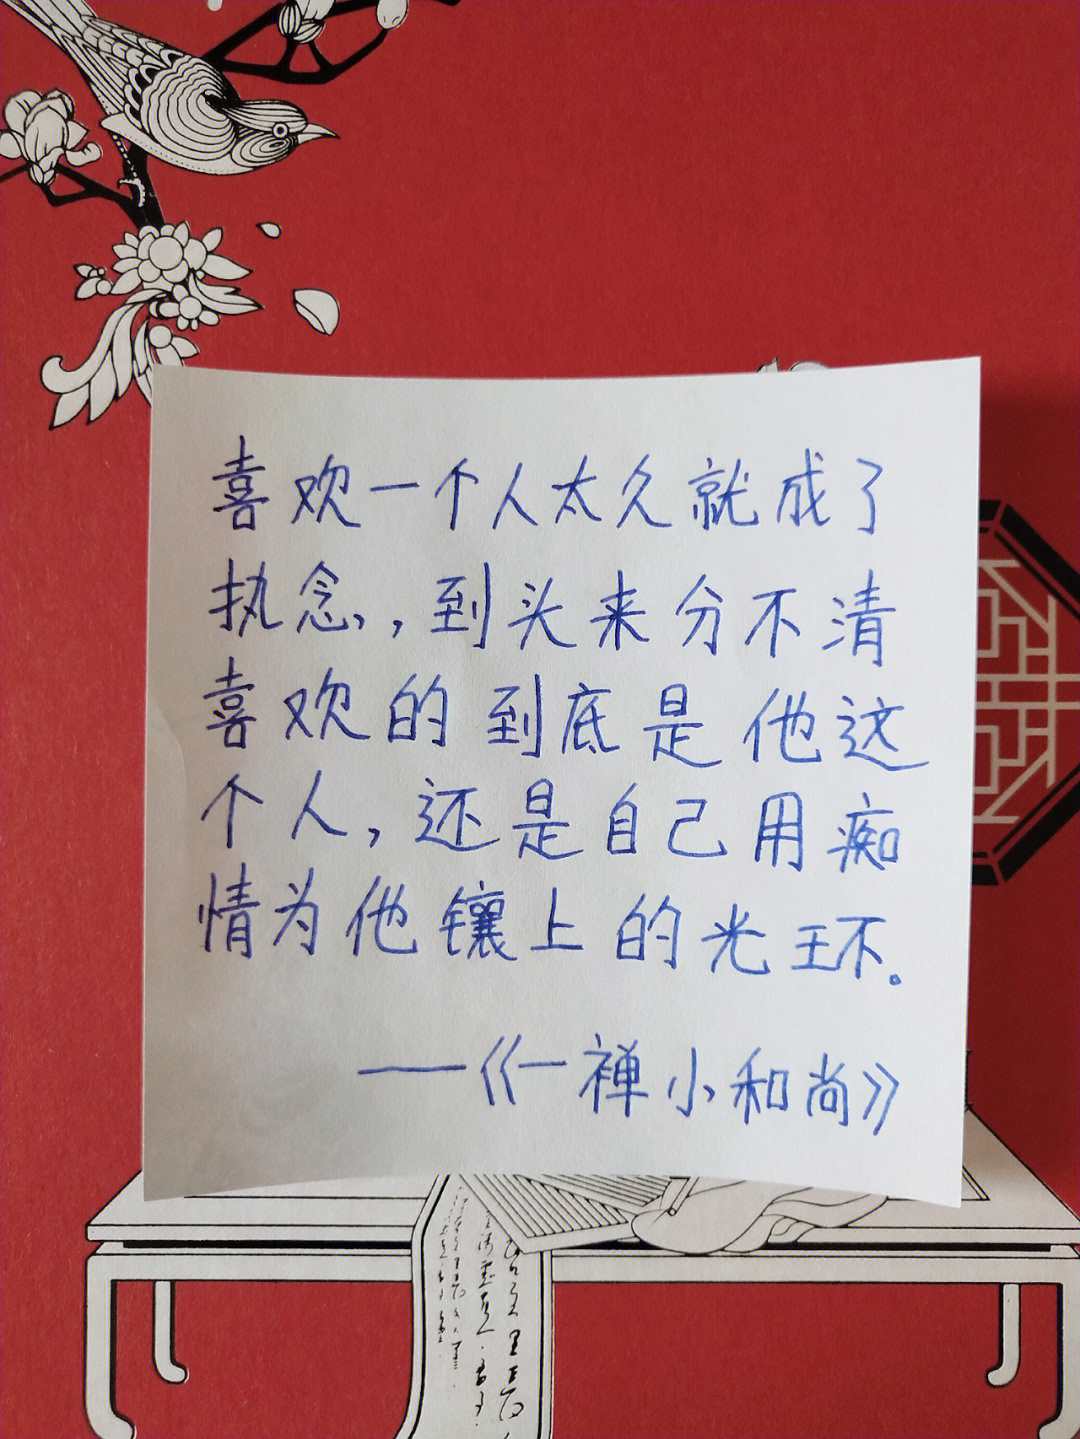 喜欢一个人太久就成了
执念,,到头来分不清
喜欢的到底是他这
个人,还是自己用痴
情为他镶上的光环。
——《一禅小和尚》